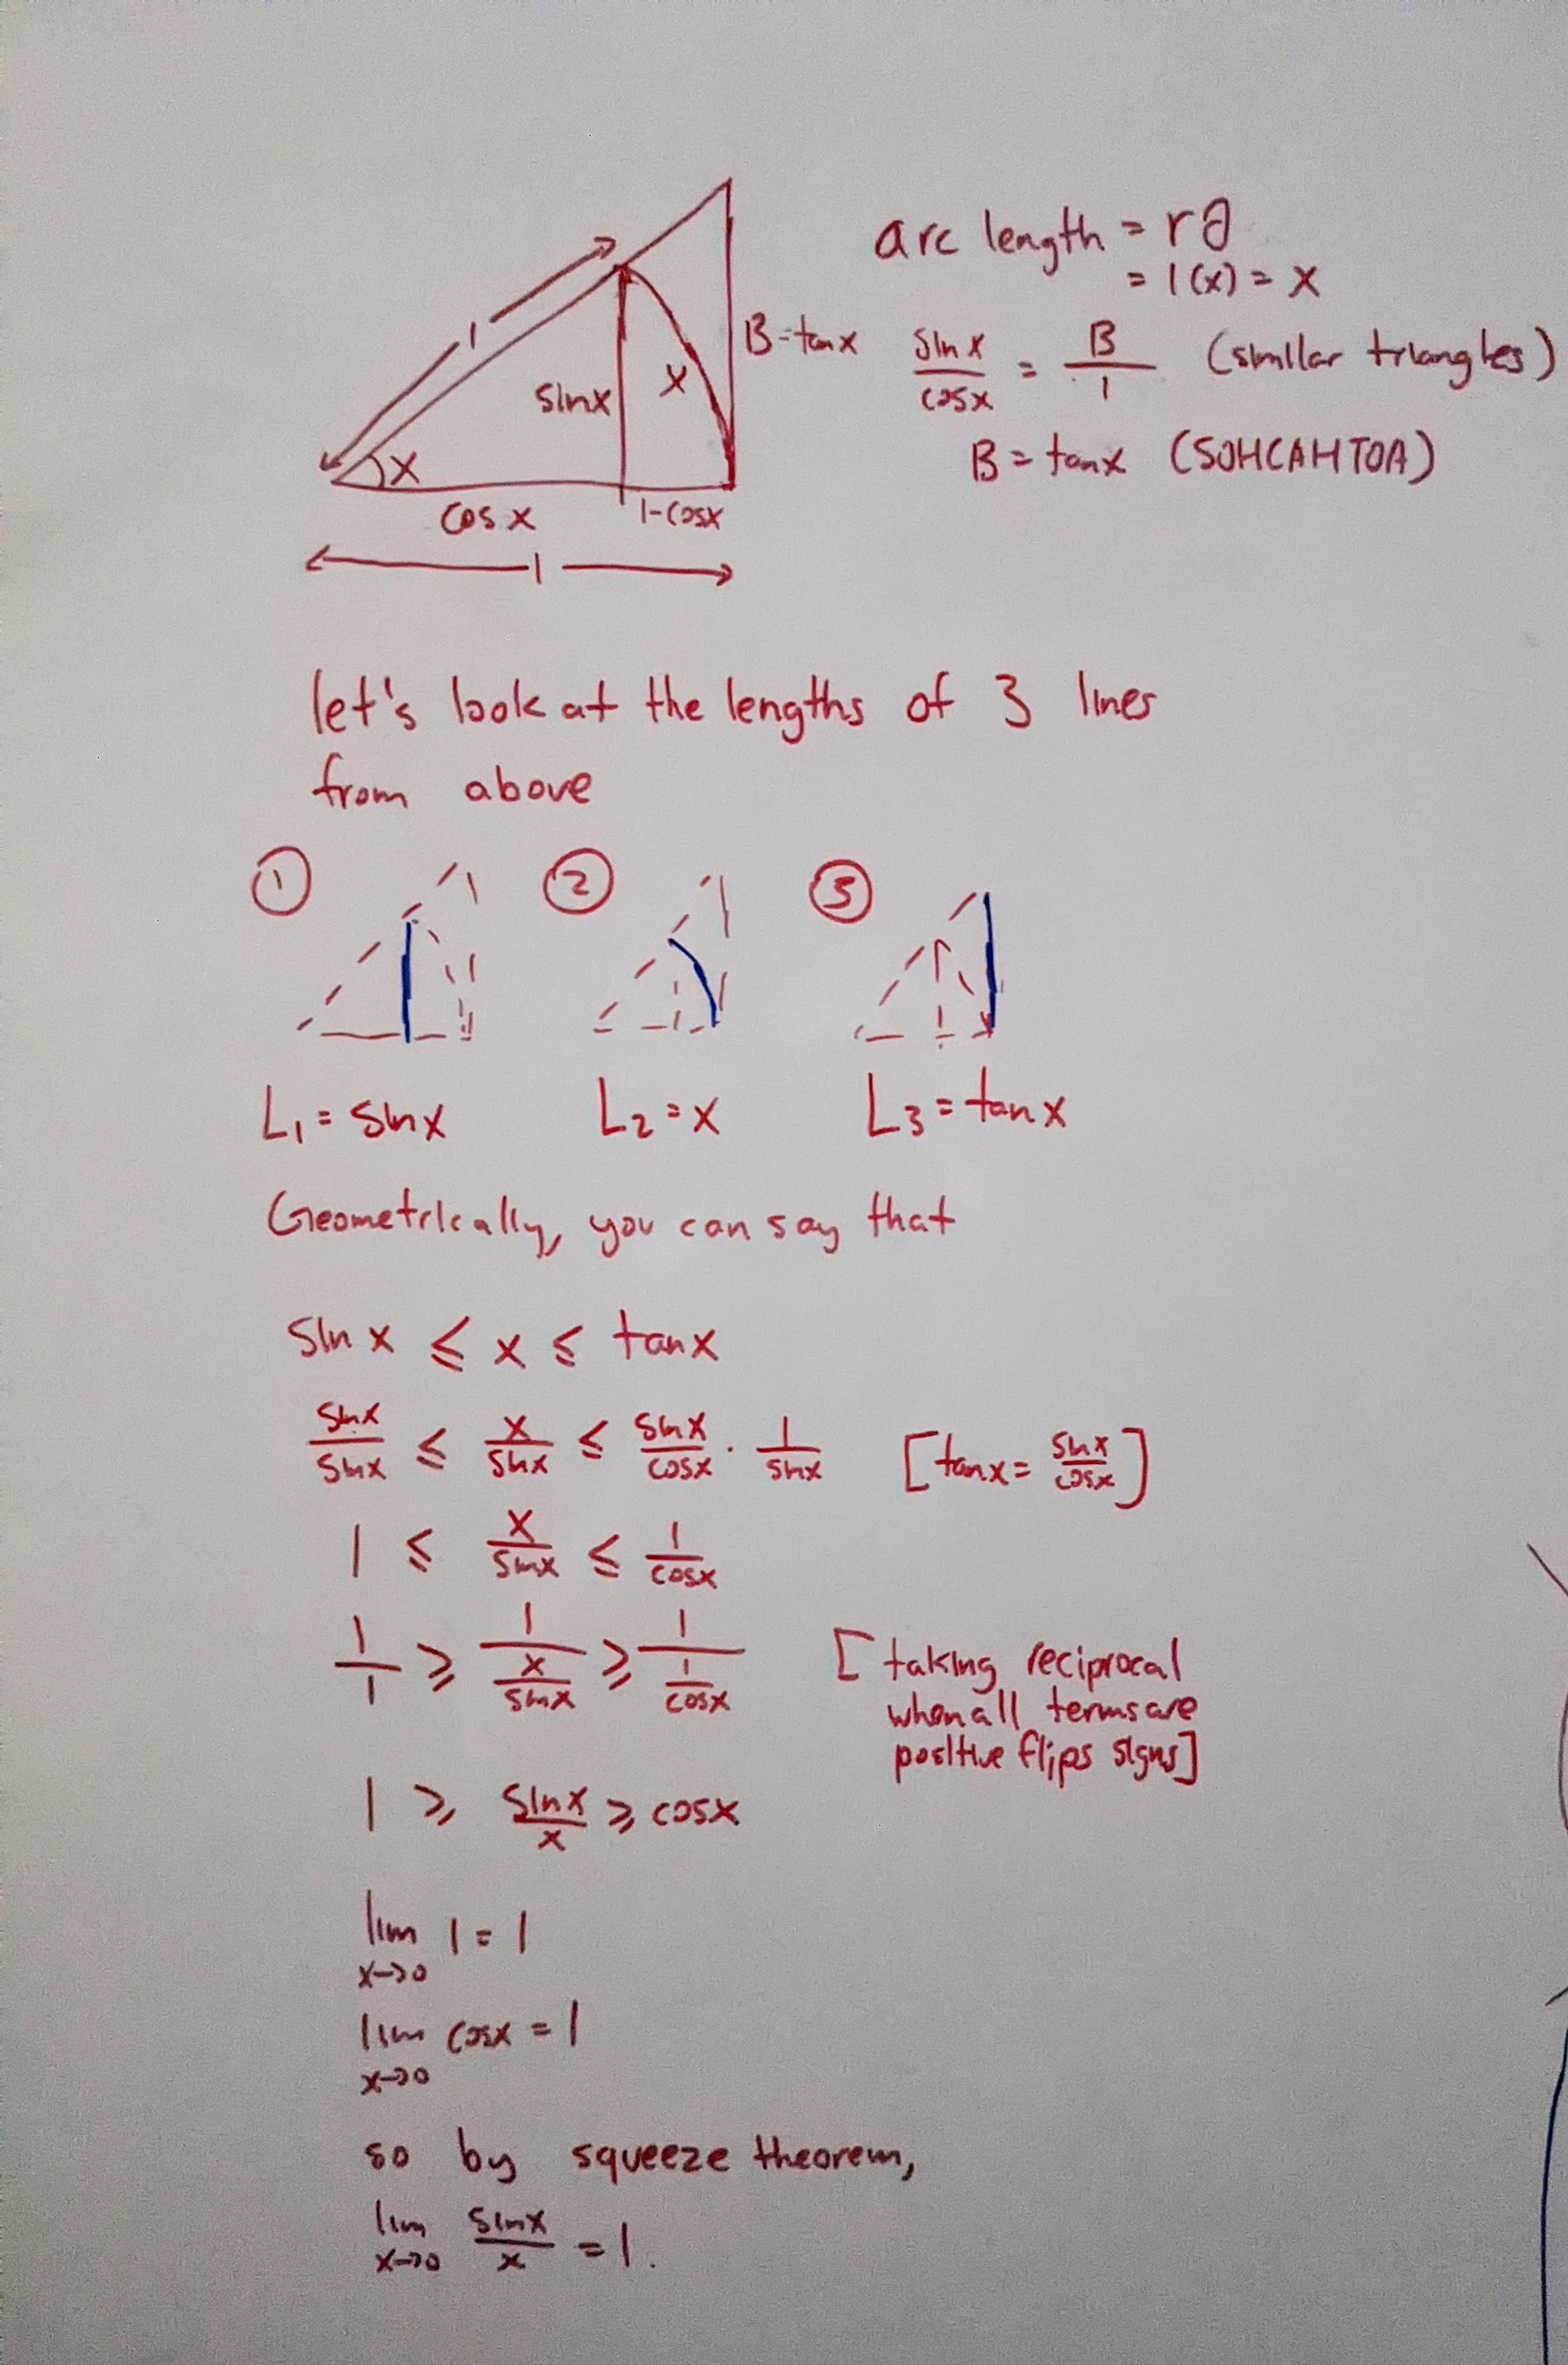 arc length = rθ
= 1(x) = x
1
B=tanx
sinx/cosx = B/1 (similar triangles)
sinx
x
B = tanx (SOHCAHTOA)
x
cosx
1-cosx
1
let's look at the lengths of 3 lines
from above
① ② ③
L₁ = sinx L₂ = x L₃ = tanx
Geometrically, you can say that
sinx ≤ x ≤ tanx
sinx/sinx ≤ x/sinx ≤ sinx/cosx · 1/sinx [tanx = sinx/cosx]
1 ≤ x/sinx ≤ 1/cosx
1/1 ≥ 1/(x/sinx) ≥ 1/(1/cosx) [taking reciprocal
when all terms are
positive flips signs]
1 ≥ sinx/x ≥ cosx
lim x→0 1 = 1
lim x→0 cosx = 1
so by squeeze theorem,
lim x→0 sinx/x = 1.